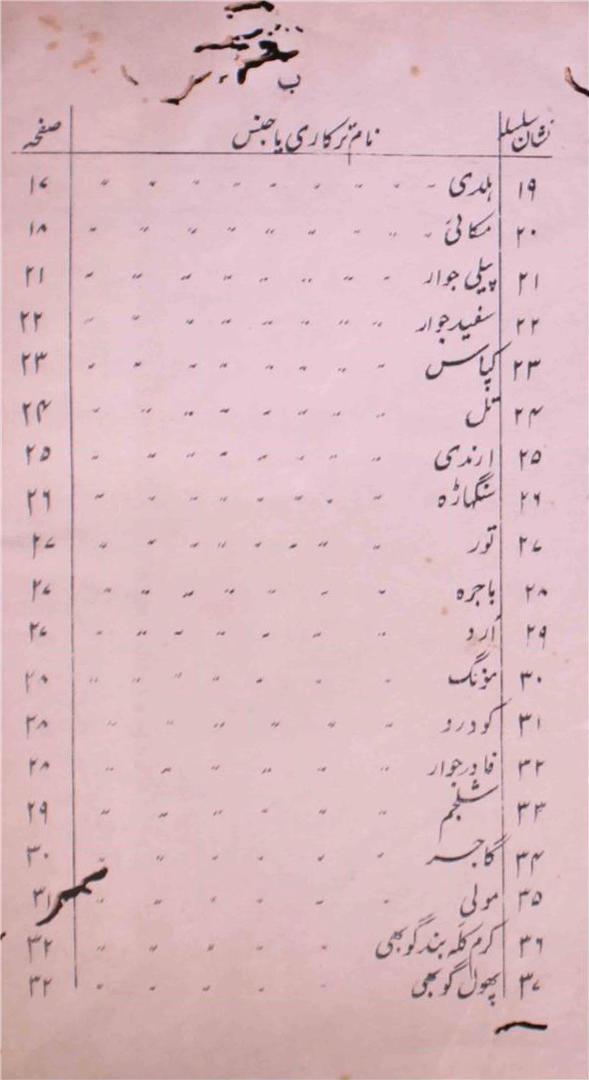 ب
نشان سلسلہ نام ترکاری یا جنس صفحہ
۱۹ ہلدی ۱۷
۲۰ مکائی ۱۸
۲۱ پیلی جوار ۲۱
۲۲ سفید جوار ۲۲
۲۳ کپاس ۲۳
۲۴ تل ۲۴
۲۵ ارندی ۲۵
۲۶ سنگہاڑہ ۲۶
۲۷ تور ۲۷
۲۸ باجرہ ۲۷
۲۹ اُرد ۲۷
۳۰ مونگ ۲۸
۳۱ کودرو ۲۸
۳۲ فادرجوار ۲۸
۳۳ شلجم ۲۹
۳۴ گاجر ۳۰
۳۵ مولی ۳۱
۳۶ کرم کلہ بند گوبھی ۳۲
۳۷ پھول گوبھی ۳۲